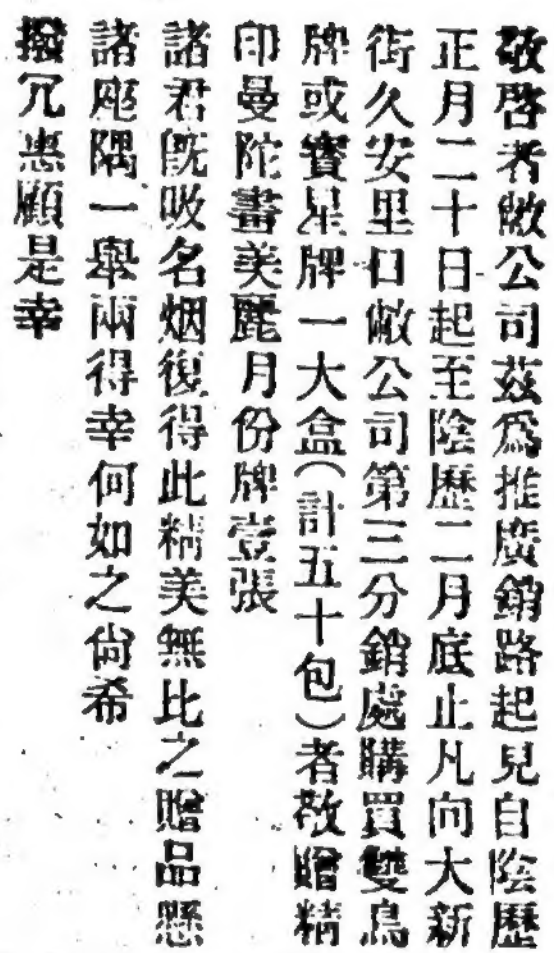 敬啓者敝公司茲爲推廣銷路起見自陰歷
正月二十日起至陰歷二月底止凡向大新
街久安里口敝公司第三分銷處購買雙鳥
牌或寶星牌一大盒(計五十包)者敬贈精
印曼陀畫美麗月份牌壹張
諸君旣吸名烟復得此精美無比之贈品懸
諸座隅一舉兩得幸何如之尙希
撥冗惠顧是幸